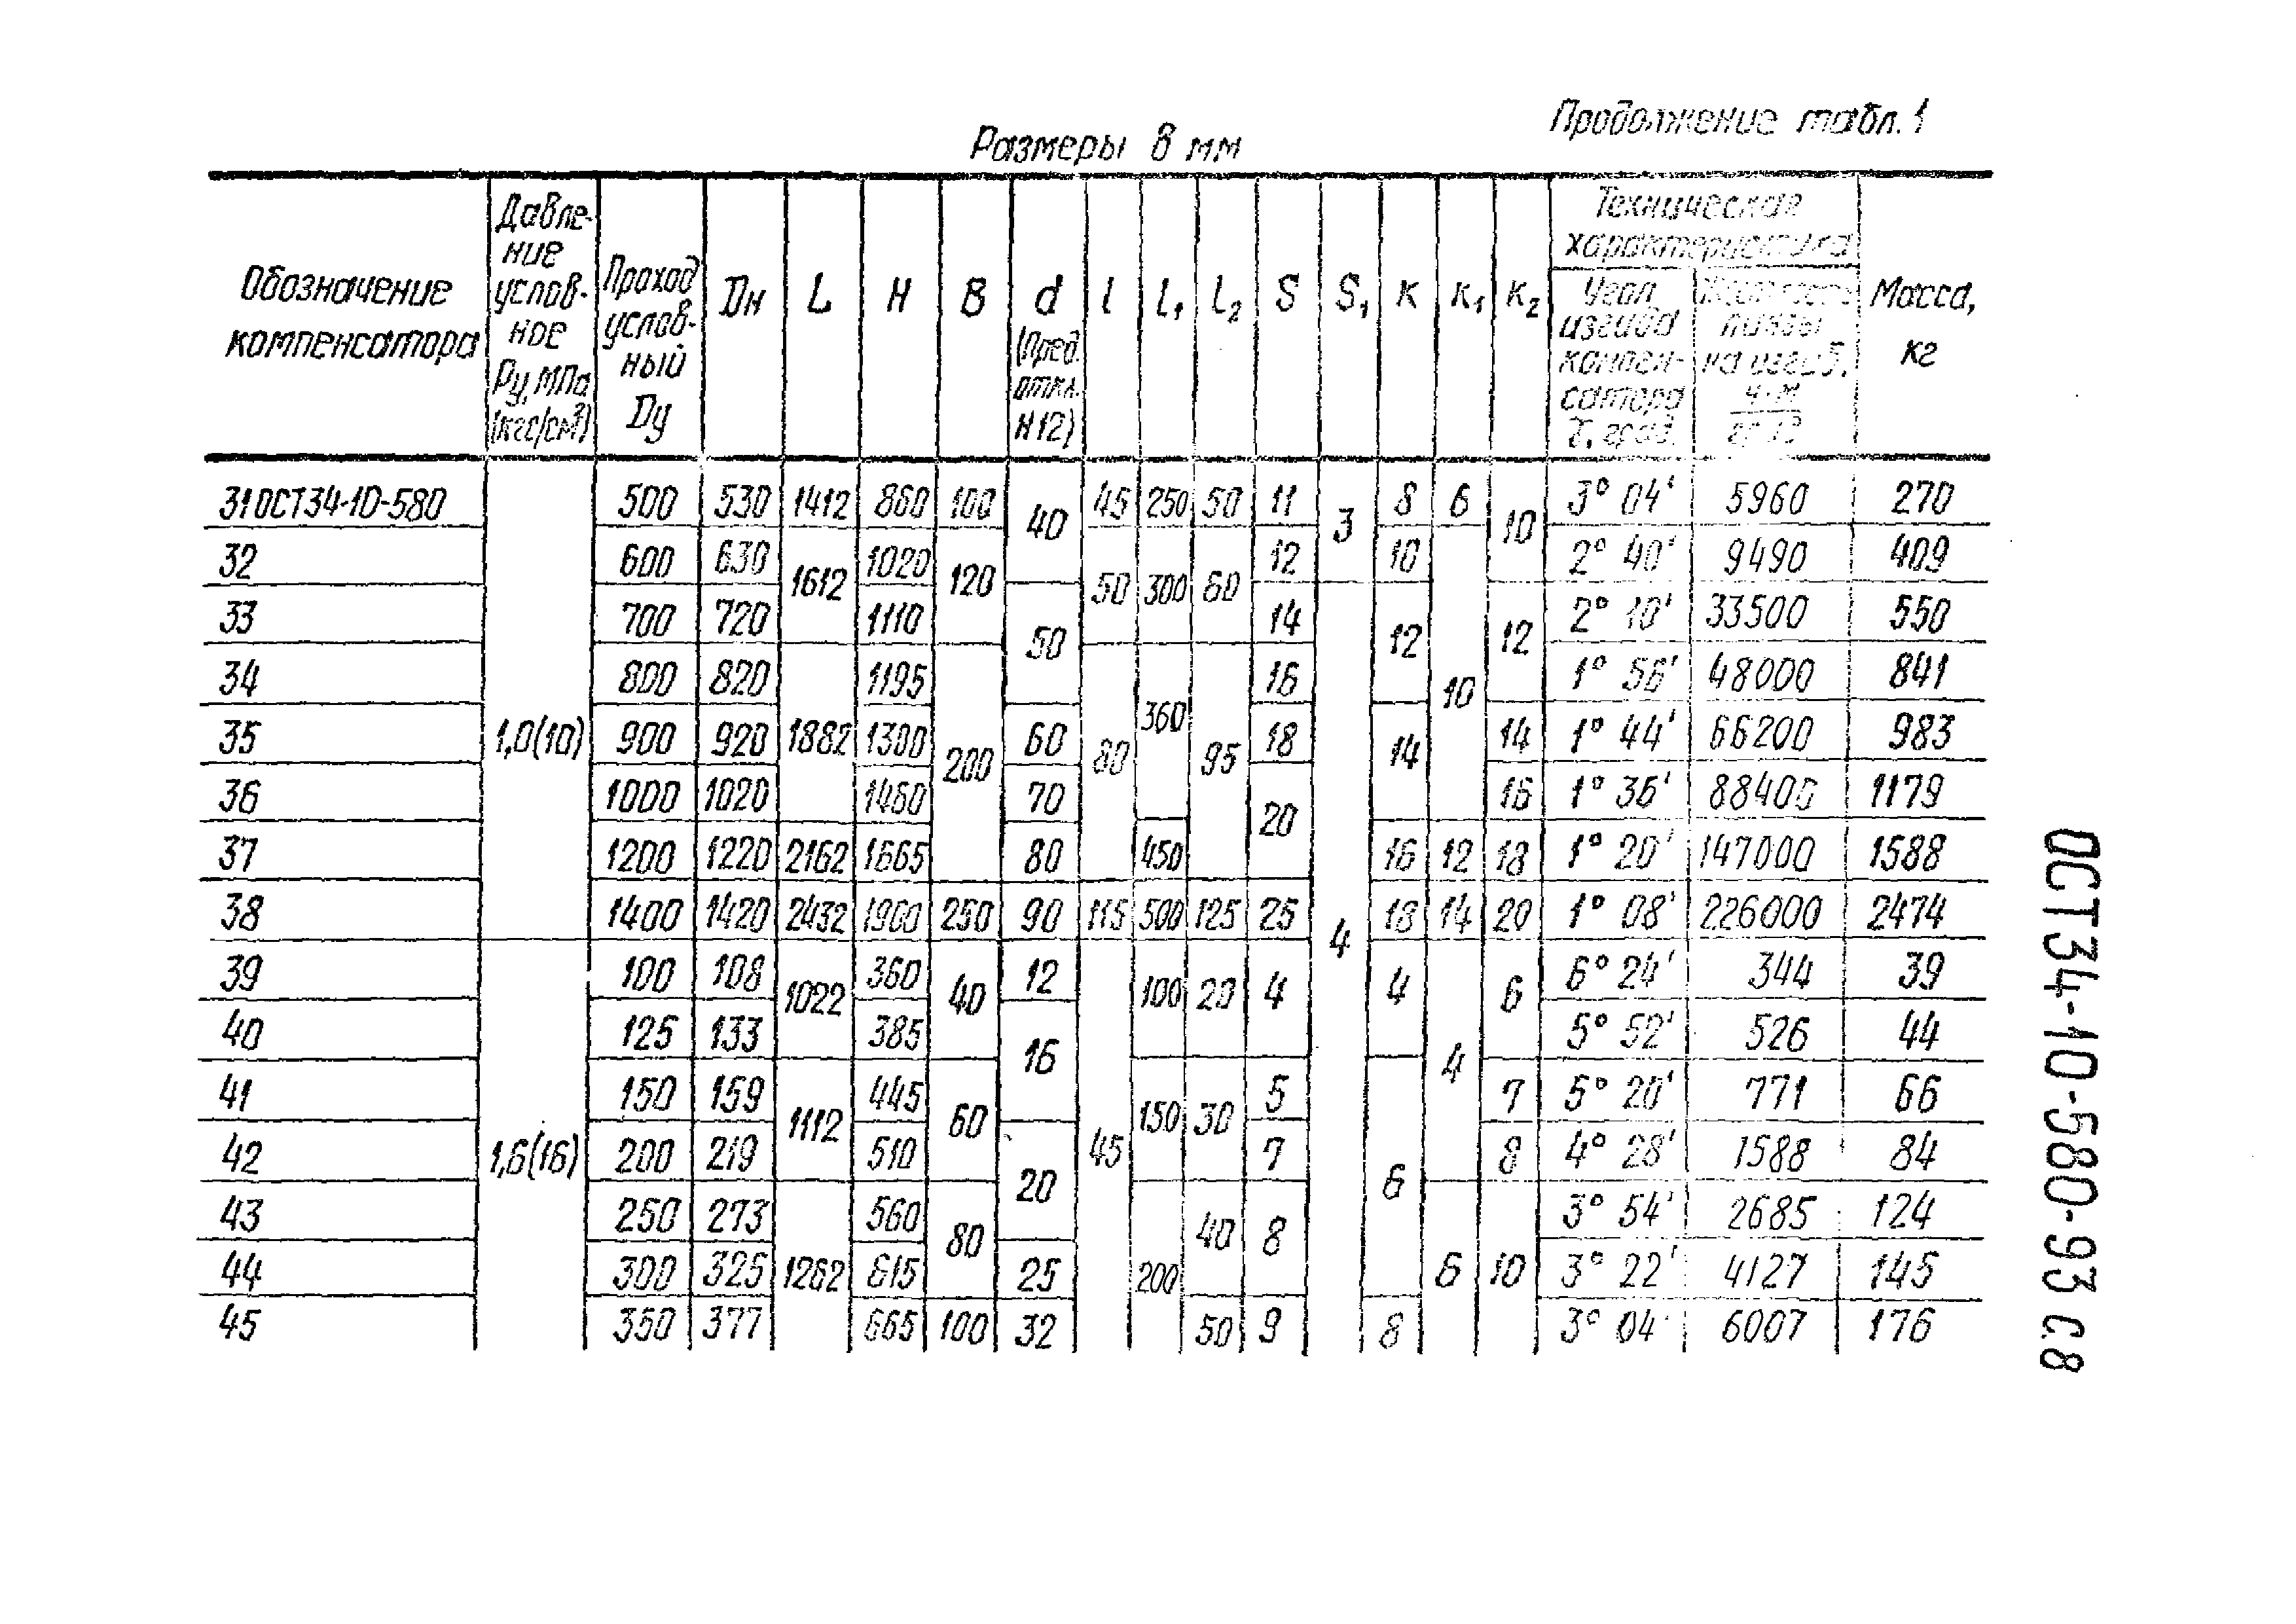 Продолжение табл. 1
Размеры в мм
Обозначение компенсатора | Давление условное Ру, МПа (кгс/см³) | Проход условный Dу | Dн | L | H | B | d (Пред. откл. H12) | l | l₁ | l₂ | S | S₁ | K | K₁ | K₂ | Техническая характеристика | Масса, кг
Угол изгиба компенсатора γ, град. | на изгиб,
31 ОСТ34-10-580 | 1,0(10) | 500 | 530 | 1412 | 860 | 100 | 40 | 45 | 250 | 50 | 11 | 3 | 8 | 6 | 10 | 3° 04' | 5960 | 270
32 | 600 | 630 | 1612 | 1020 | 120 | 50 | 300 | 60 | 12 | 10 | 10 | 2° 40' | 9490 | 409
33 | 700 | 720 | 1110 | 50 | 14 | 4 | 12 | 12 | 2° 10' | 33500 | 550
34 | 800 | 820 | 1882 | 1195 | 200 | 80 | 360 | 95 | 16 | 1° 56' | 48000 | 841
35 | 900 | 920 | 1300 | 60 | 18 | 14 | 14 | 1° 44' | 66200 | 983
36 | 1000 | 1020 | 1460 | 70 | 20 | 16 | 1° 36' | 88400 | 1179
37 | 1200 | 1220 | 2162 | 1665 | 80 | 450 | 16 | 12 | 18 | 1° 20' | 147000 | 1588
38 | 1400 | 1420 | 2432 | 1900 | 250 | 90 | 115 | 500 | 125 | 25 | 18 | 14 | 20 | 1° 08' | 226000 | 2474
39 | 1,6(16) | 100 | 108 | 1022 | 360 | 40 | 12 | 45 | 100 | 20 | 4 | 4 | 4 | 6 | 6° 24' | 344 | 39
40 | 125 | 133 | 385 | 16 | 5° 52' | 526 | 44
41 | 150 | 159 | 1112 | 445 | 60 | 150 | 30 | 5 | 6 | 7 | 5° 20' | 771 | 66
42 | 200 | 219 | 510 | 20 | 7 | 8 | 4° 28' | 1588 | 84
43 | 250 | 273 | 1262 | 560 | 80 | 200 | 40 | 8 | 6 | 10 | 3° 54' | 2685 | 124
44 | 300 | 325 | 615 | 25 | 3° 22' | 4127 | 145
45 | 350 | 377 | 665 | 100 | 32 | 50 | 9 | 8 | 3° 04' | 6007 | 176
ОСТ34-10-580-93 с.8